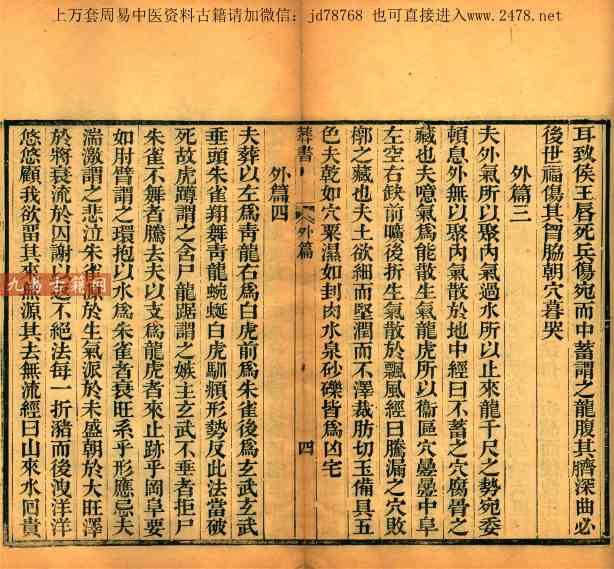 上万套周易中医资料古籍请加微信：jd78768 也可直接进入www.2478.net
耳致侯王唇死兵傷宛而中蓄謂之龍腹其臍深曲必
後世福傷其胷脇朝穴暮哭
外篇三
夫外氣所以聚內氣過水所以止來龍千尺之勢宛委
頓息外無以聚內氣散於地中經曰不蓄之穴腐骨之
藏也夫噫氣為能散生氣龍虎所以衞區穴疉疉中阜
左空右缺前曠後折生氣散於飄風經曰騰漏之穴敗
槨之藏也夫土欲細而堅潤而不澤裁肪切玉備具五
色夫乾如穴粟濕如刲肉水泉砂礫皆為凶宅
葬書
外篇
四
外篇四
夫葬以左為青龍右為白虎前為朱雀後為玄武玄武
垂頭朱雀翔舞青龍蜿蜒白虎馴頫形勢反此法當破
死故虎蹲謂之含尸龍踞謂之嫉主玄武不垂者拒尸
朱雀不舞者騰去夫以支為龍虎者來止跡乎岡阜要
如肘臂謂之環抱以水為朱雀者衰旺系乎形應忌夫
湍激謂之悲泣朱雀源於生氣派於未盛朝於大旺澤
於將衰流於囚謝以返不絕法每一折瀦而後洩洋洋
悠悠顧我欲畱其來無源其去無流經曰山來水囘貴
九萬古籍网